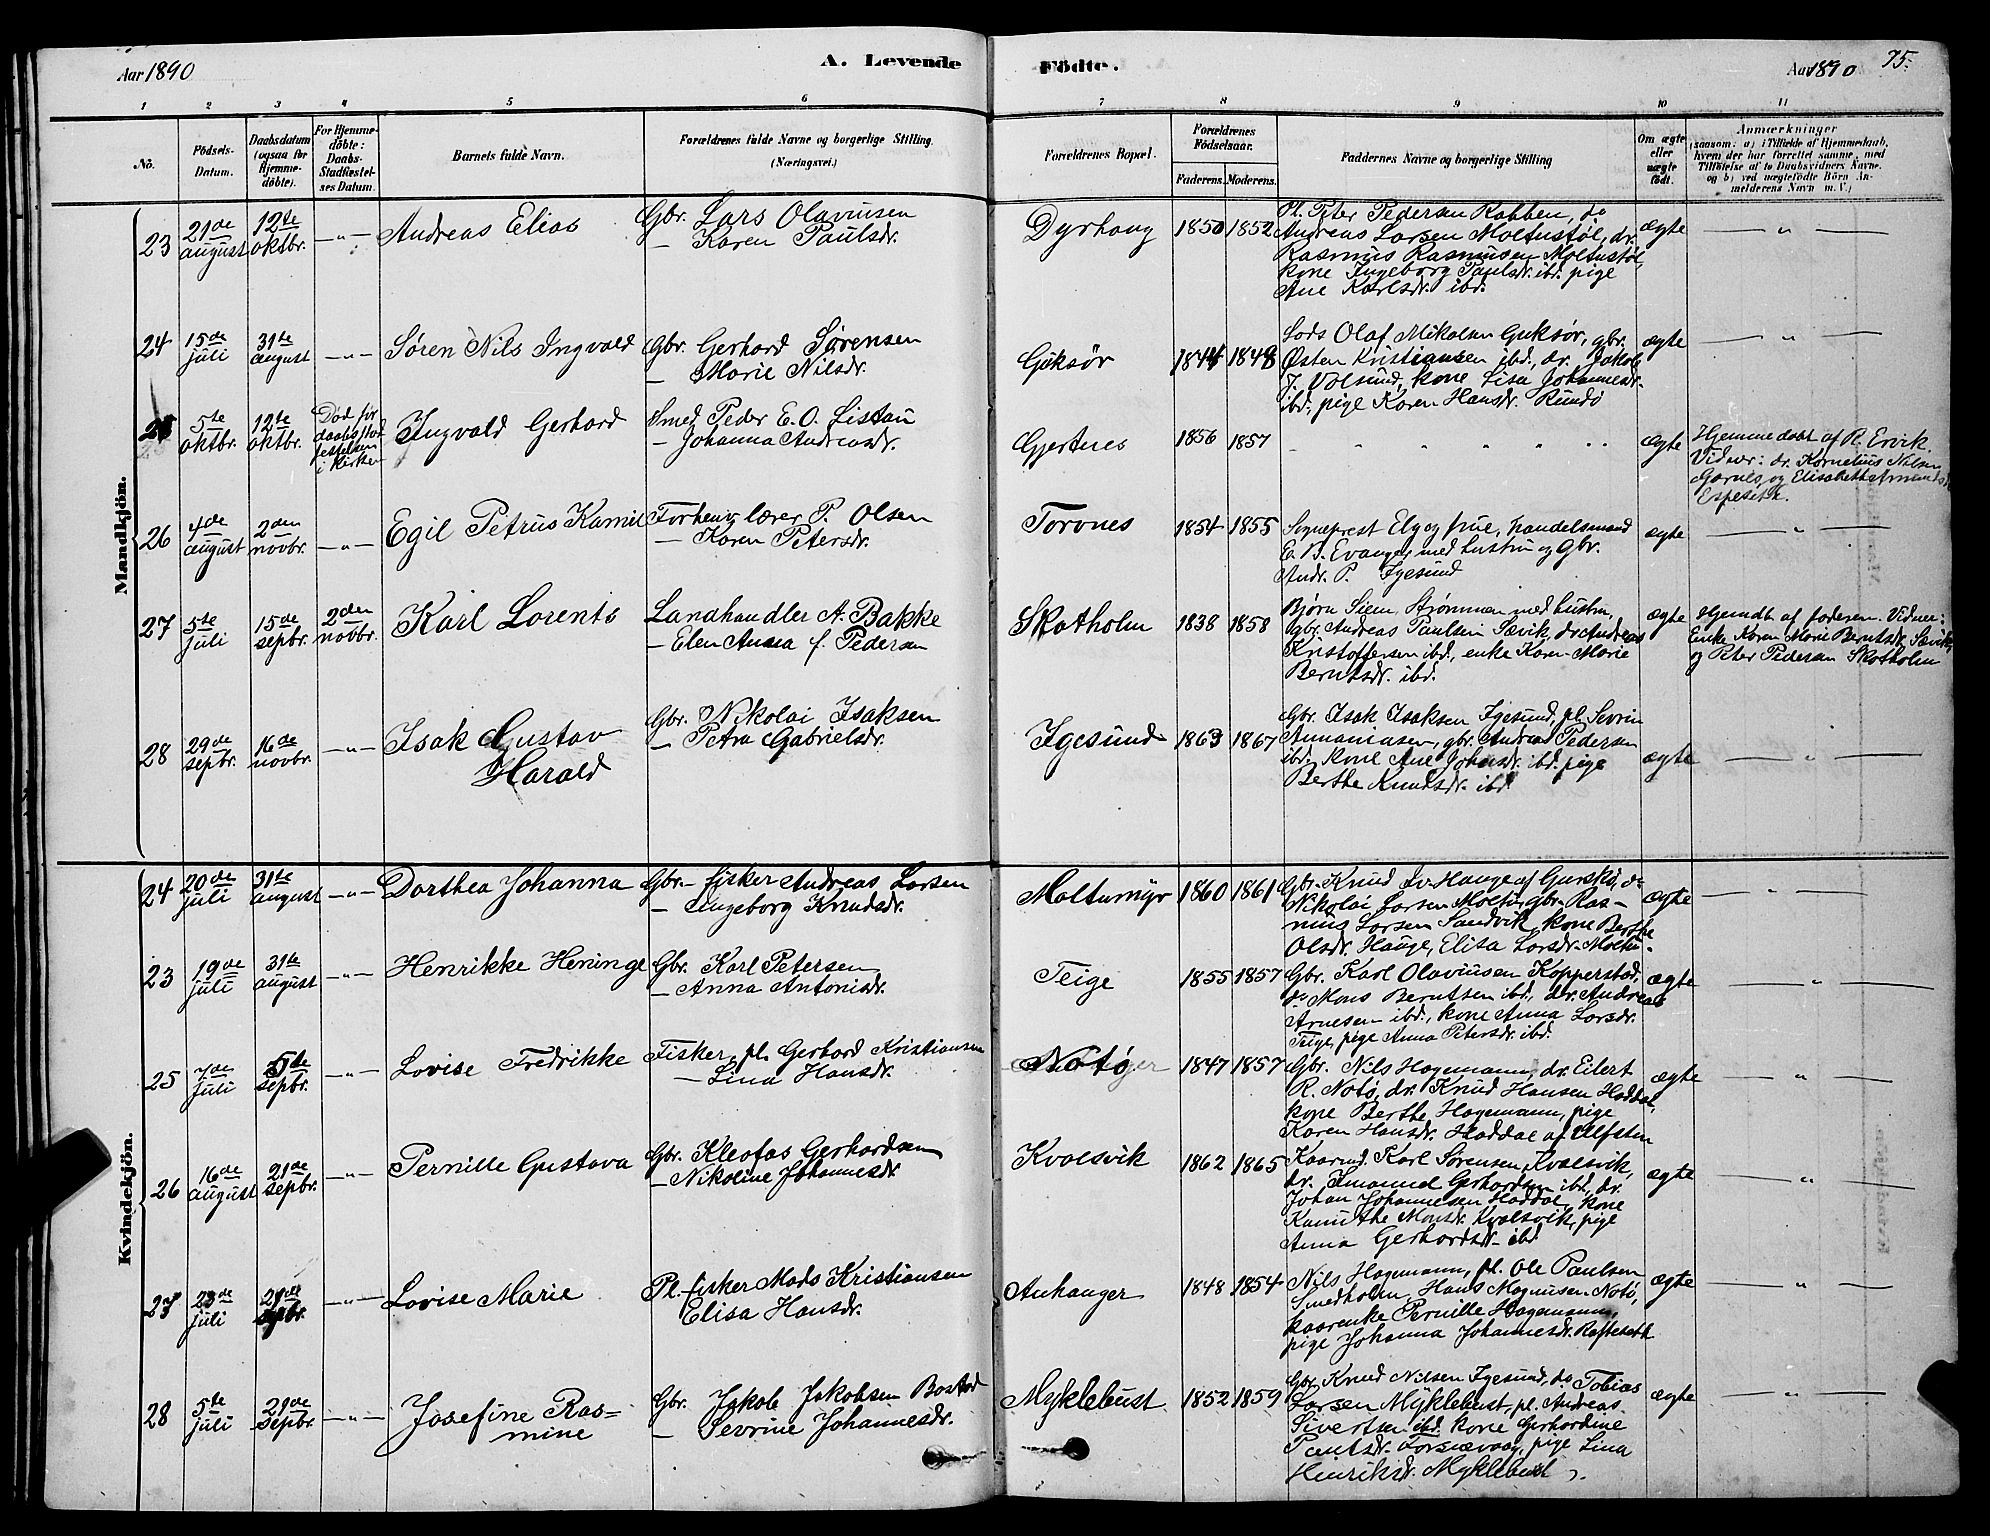 Aar 1890
A. Levende
Födte.
Aar 1890
75.
1 2 3 4 5 6 7 8 9 10 11
No.
Födsels-
Datum.
Daabsdatum
(ogsaa for
Hjemme-
döbte).
For Hjemme-
döbte:
Daabs-
Stadfæstel-
ses Datum.
Barnets fulde Navn.
Forældrenes fulde Navne og borgerlige Stilling.
(Næringsvei.)
Forældrenes Bopæl.
Forældrenes
Födselsaar.
Faderens. Moderens.
Faddernes Navne og borgerlige Stilling
Om ægte
eller
uægte
födt.
Anmærkninger
(saasom: a) i Tilfælde af Hjemmedaab,
hvem der har forrettet samme, med
Tilföielse af to Daabsvidners Navne.
og b) ved uægtefödte Börn An-
melderens Navn m. V.)
Mandkjön.
23
21de
august
12te
oktbr.
—"—
Andreas Elias
Gbr. Lars Olavinsen
— Karen Paulsdr.
Dyrhaug
1850
1852
Pl. Peter Pedersen Rabben, do
Andreas Larsen Moltustøl, dr.
Rasmus Rasmusen Moltustøl,
kone Ingeborg Paulsdr. ibd. pige
Ane Karlsdr. ibd.
ægte
— " —
24
15de
juli
31te
august
—"—
Søren Nils Ingvald
Gbr. Gerhard Sørensen
— Marie Nilsdr.
Gjøksør
1844
1848
Lods Olaf Mikalsen Gjøksør, gbr.
Østen Kristiansen ibd., dr. Jakob
J. Volsund, kone Lisa Johannesdr.
ibd., pige Karen Hansdr. Rundø
ægte
— " —
25
5te
oktbr.
12te
oktbr.
Død før
daabsstad
festelsen
i kirken
Ingvald Gerhard
Smed Peder E. O. Listau
— Johanna Andreasdr.
Gjertnes
1856
1857
" " " " "
ægte
Hjemmedøbt af R. Ervik.
Vidner: dr. Kornelius Nilsen
Garnes, og Elisabeth Amundsdr.
Espeseth.
26
4de
august
2den
novbr.
—"—
Egil Petrus Kamil
Forhenv. lærer P. Olsen
— Karen Petersdr.
Torvnes
1854
1855
Sogneprest Elg og frue, handelsmand
E. B. Evanger med hustru og Gbr.
Andr. P. Igesund
ægte
— " —
27
5te
juli
15de
sepbr.
2den
novbr.
Karl Lorents
Landhandler A. Bakke
— Elen Anna f. Pedersen
Skotholm
1838
1858
Bjørn Siem Strømmen med hustru,
gbr. Andreas Paulsen Sævik, dr. Andreas
Kristoffersen ibd., enke Karen Marie
Berntsdr. ibd.
ægte
Hjemdt. af faderen. Vidner:
Enke Karen Marie Berntsdr. Sævik,
og Peter Pedersen Skotholm
28
29de
sepbr.
16de
novbr.
—"—
Isak Gustav
Harald
Gbr. Nikolai Isaksen
— Petra Gabrielsdr.
Igesund
1863
1867
Gbr. Isak Isaksen Igesund, pl. Sevrin
Annaniasen, gbr. Andreas Pedersen
ibd., kone Ane Johansdr. ibd. pige
Berthe Knudsdr. ibd
ægte
— " —
Kvindekjön.
24
20de
juli
31te
august
—"—
Dorthea Johanna
Gbr.- fisker Andreas Larsen
— Ingeborg Knudsdr.
Moltumyr
1860
1861
Gbr. Knud Hauge af Gurskø, do
Nikolai Larsen Moltu, gbr. Ras-
mus Larsen Sandvik, kone Berthe
Olsdr. Hauge, Elisa Larsdr. Moltu.
ægte
— " —
23
19de
juli
31te
august
—"—
Henrikke Heninge
Gbr. Karl Petersen
— Anna Antonisdr.
Teige
1855
1857
Gbr. Karl Olavinsen Kopperstad,
do Mons Berntsen ibd., dr. Andreas
Arnesen ibd., kone Anna Larsdr.
Teige, pige Anna Petersdr. ibd.
ægte
— " —
25
7de
juli
5te
sepbr.
—"—
Lovise Fredrikke
Fisker, pl. Gerhard Kristiansen
— Lina Hansdr.
Notø
1847
1857
Gbr. Nils Hagemann, dr. Eilert
R. Notø, dr. Knud Hansen Haddal,
kone Berthe Hagemann, pige
Karen Hansdr. Haddal af Ulfsten
ægte
— " —
26
16de
august
21de
sepbr.
—"—
Pernille Gustava
Gbr. Kleofas Gerhardsen
— Nikoline Johannesdr.
Kvalsvik
1862
1865
Kaarmd. Karl Sørensen Kvalsvik,
dr. Imanuel Gerhardsen ibd., dr.
Johan Johannesen Haddal, kone
Kanutthe Monsdr. Kvalsvik, pige
Anna Gerhardsdr. ibd
ægte
— " —
27
23de
juli
21de
sepbr.
—"—
Lovise Marie
Pl. fisker Mads Kristiansen
Elisa Hansdr.
Anhanger
1848
1854
Nils Hagemann, pl. Ole Paulsen
Smedholm, Hans Magnusen Notø,
kaarenke Pernille Hagemann,
pige Johanna Johannesdr. Rafteseth
ægte
— " —
28
5te
juli
21de
Sepbr.
—"—
Josefine Ras-
mine
Gbr. Jakob Jakobsen Bostad
— Sevrine Johannesdr.
Myklebust
1852
1859
Gbr. Knud Nilsen Igesund, do Tobias
Larsen Myklebust, pl. Andreas
Sivertsen ibd. kone Gerhardine
Paulsdr. Torsnevaag, pige Lina
Henriksdr. Myklebust
ægte
— " —